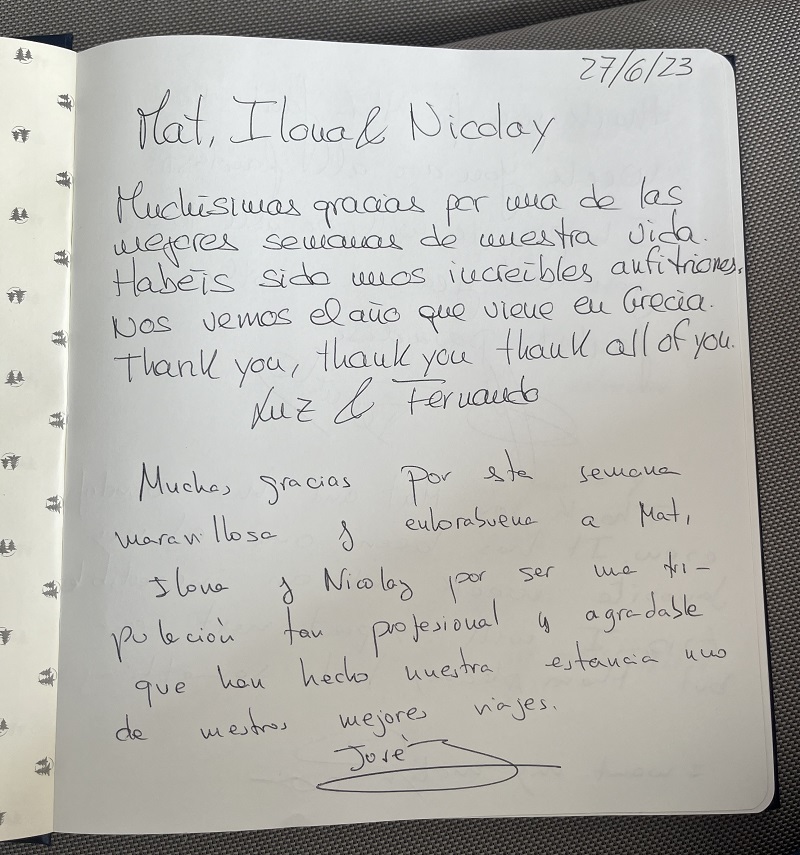 27/6/23
Mat, Ilona & Nicolay
Muchísimas gracias por una de las
mejores semanas de nuestra vida.
Habéis sido unos increíbles anfitriones.
Nos vemos el año que viene en Grecia.
Thank you, thank you thank all of you.
Luz & Fernando
Muchas gracias por esta semana
maravillosa y enhorabuena a Mat,
Ilona y Nicolay por ser una tri-
pulación tan profesional y agradable
que han hecho nuestra estancia uno
de nuestros mejores viajes.
José